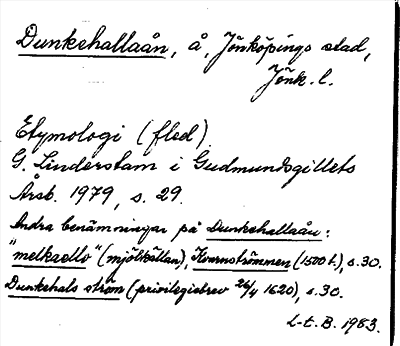 Dunkehallaån, å, Jönköpings stad,
Jönk. l.
Etymologi (fled).
G. Linderstam i Gudmundsgillets
Årsb. 1979, s. 29.
Andra benämningar på Dunkehallaån:
"melkaello" (mjölkällan), Kvarnströmmen (1500 t.), s. 30.
Dunkehals ström (privilegiebrev 26/4 1620), s. 30.
L-t. B. 1983.